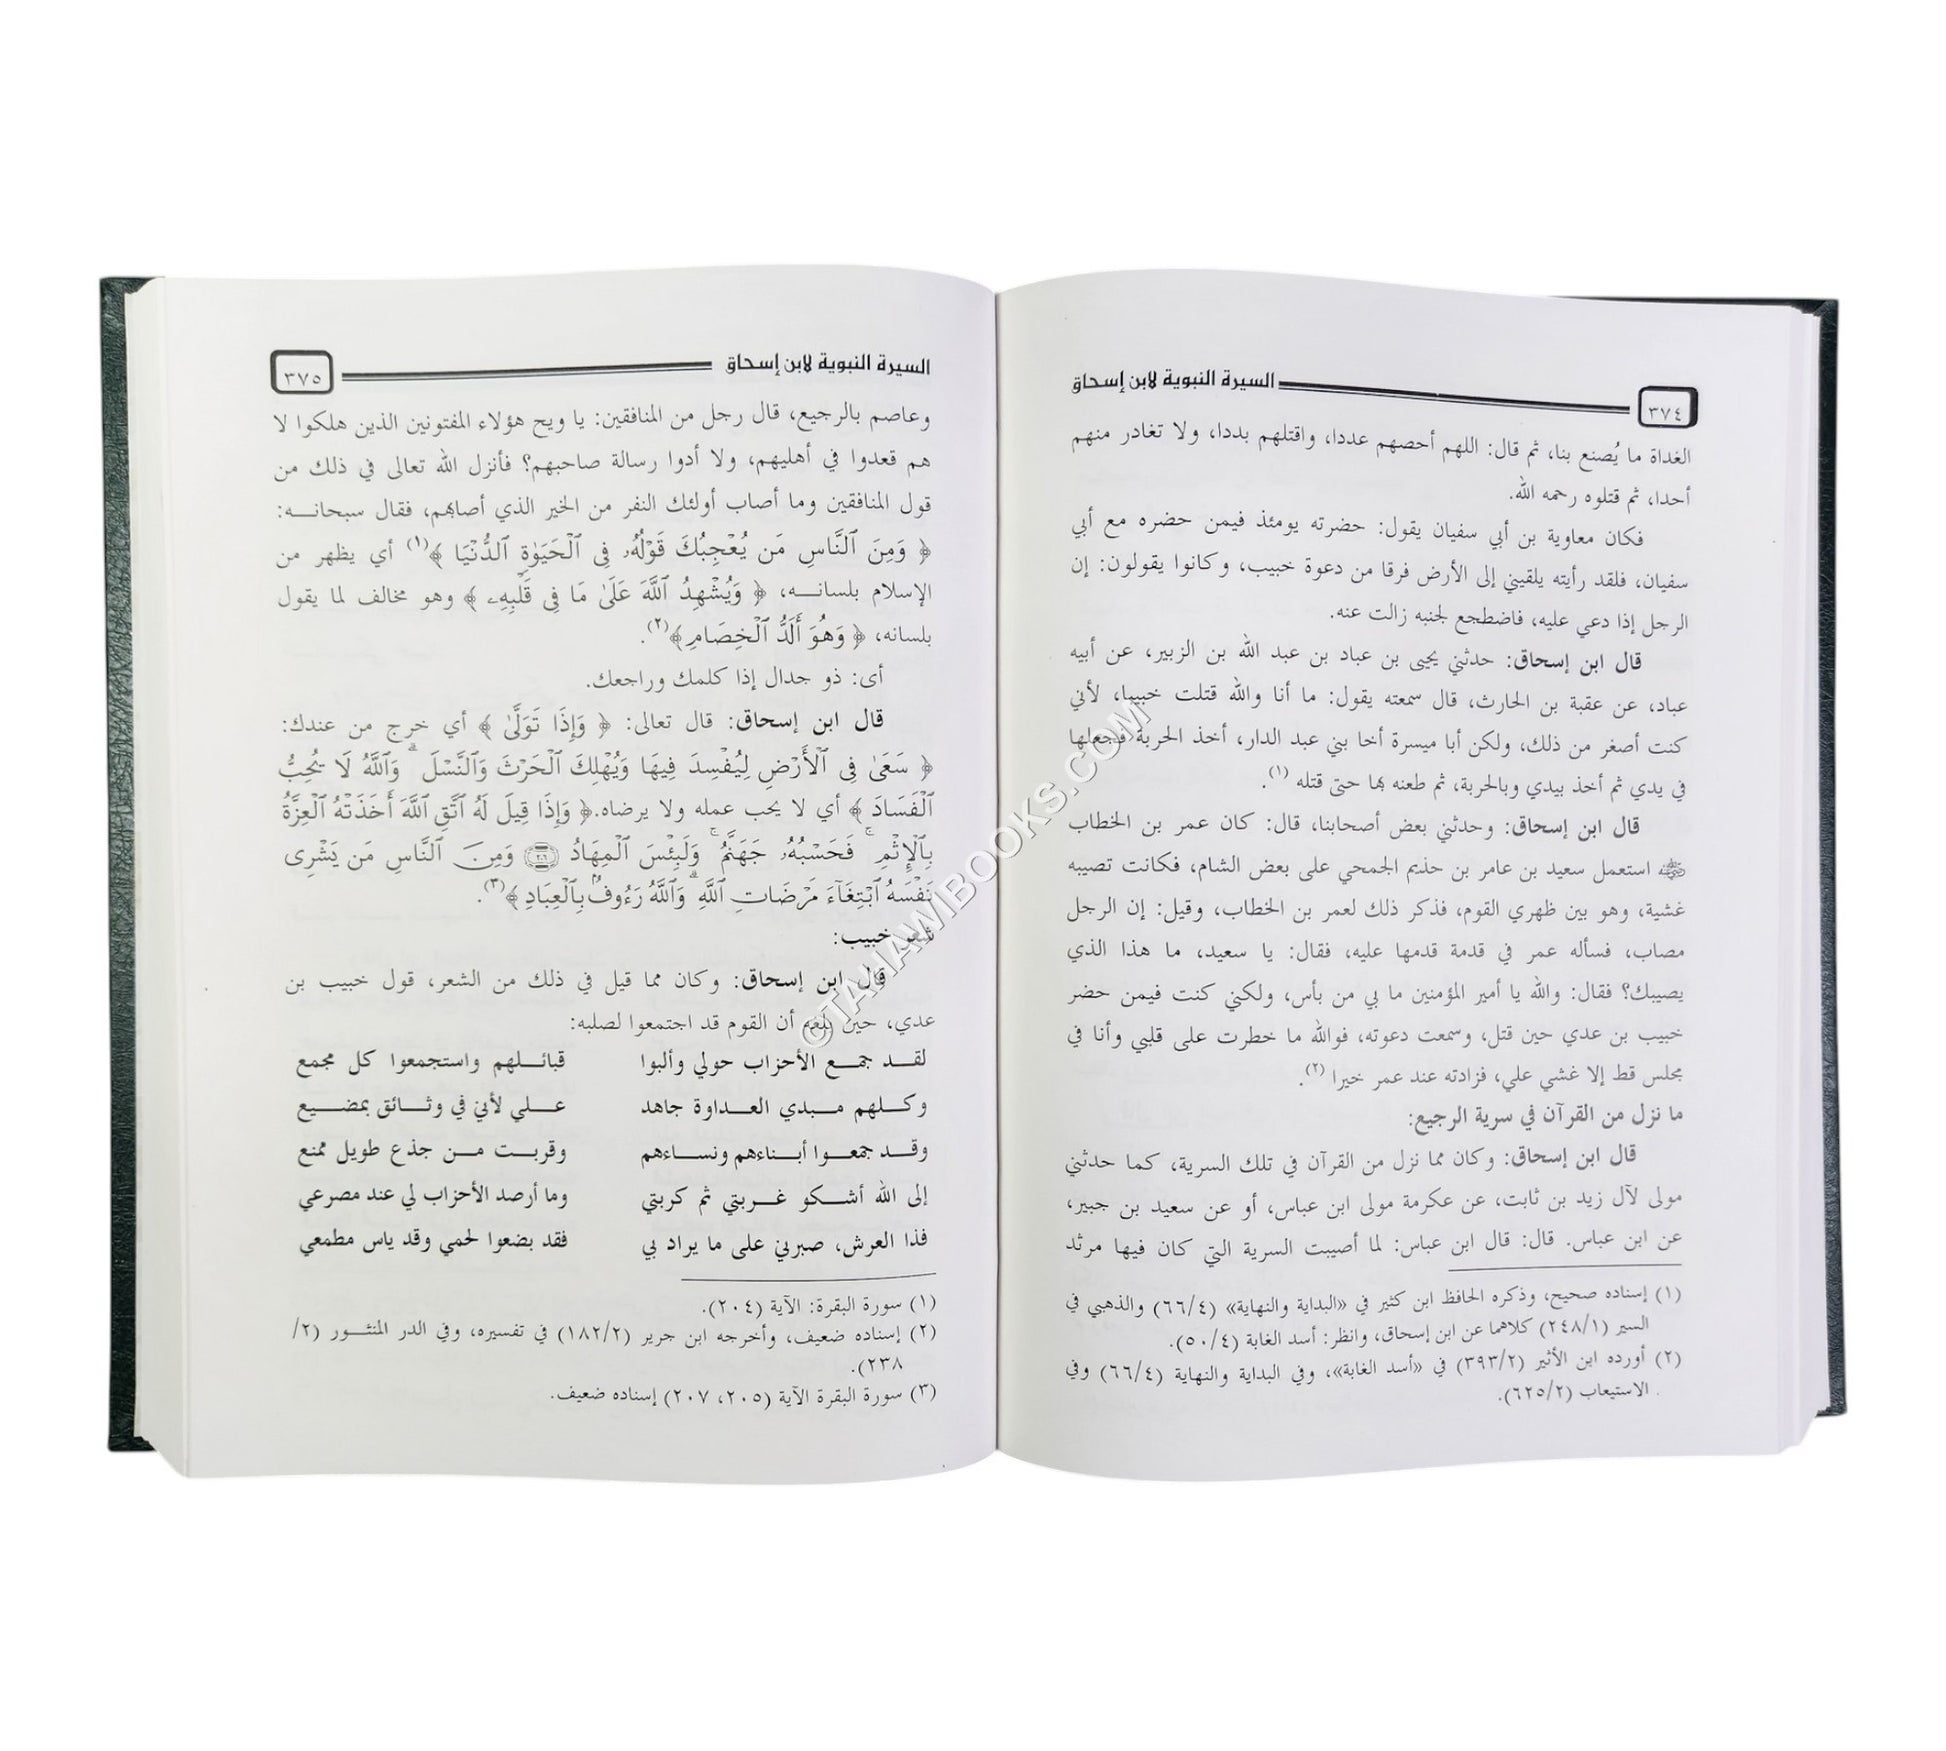 ٣٧٤ السيرة النبوية لابن إسحاق
الغداة ما يُصنع بنا، ثم قال: اللهم أحصهم عددا، واقتلهم بددا، ولا تغادر منهم
أحدا، ثم قتلوه رحمه الله.
فكان معاوية بن أبي سفيان يقول: حضرته يومئذ فيمن حضره مع أبي
سفيان، فلقد رأيته يلقيني إلى الأرض فرقا من دعوة خبيب، وكانوا يقولون: إن
الرجل إذا دعي عليه، فاضطجع لجنبه زالت عنه.
قال ابن إسحاق: حدثني يحيى بن عباد بن عبد الله بن الزبير، عن أبيه
عباد، عن عقبة بن الحارث، قال سمعته يقول: ما أنا والله قتلت خبيبا، لأني
كنت أصغر من ذلك، ولكن أبا ميسرة أخا بني عبد الدار، أخذ الحربة فجعلها
في يدي ثم أخذ بيدي وبالحربة، ثم طعنه بها حتى قتله (١).
قال ابن إسحاق: وحدثني بعض أصحابنا، قال: كان عمر بن الخطاب
استعمل سعيد بن عامر بن حذيم الجمحي على بعض الشام، فكانت تصيبه
غشية، وهو بين ظهري القوم، فذكر ذلك لعمر بن الخطاب، وقيل: إن الرجل
مصاب، فسأله عمر في قدمة قدمها عليه، فقال: يا سعيد، ما هذا الذي
يصيبك؟ فقال: والله يا أمير المؤمنين ما بي من بأس، ولكني كنت فيمن حضر
خبيب بن عدي حين قتل، وسمعت دعوته، فوالله ما خطرت على قلبي وأنا في
مجلس قط إلا غشي علي، فزادته عند عمر خيرا (٢).
ما نزل من القرآن في سرية الرجيع:
قال ابن إسحاق: وكان مما نزل من القرآن في تلك السرية، كما حدثني
مولى لآل زيد بن ثابت، عن عكرمة مولى ابن عباس، أو عن سعيد بن جبير،
عن ابن عباس. قال: قال ابن عباس: لما أصيبت السرية التي كان فيها مرثد
(١) إسناده صحيح، وذكره الحافظ ابن كثير في «البداية والنهاية» (٦٦/٤) والذهبي في
السير (٢٤٨/١) كلاهما عن ابن إسحاق، وانظر: أسد الغابة (٥٠/٤).
(٢) أورده ابن الأثير (٣٩٣/٢) في «أسد الغابة»، وفي البداية والنهاية (٦٦/٤) وفي
الاستيعاب (٦٢٥/٢).
السيرة النبوية لابن إسحاق ٣٧٥
وعاصم بالرجيع، قال رجل من المنافقين: يا ويح هؤلاء المفتونين الذين هلكوا لا
هم قعدوا في أهليهم، ولا أدوا رسالة صاحبهم؟ فأنزل الله تعالى في ذلك من
قول المنافقين وما أصاب أولئك النفر من الخير الذي أصابهم، فقال سبحانـه:
﴿ وَمِنَ ٱلنَّاسِ مَن يُعْجِبُكَ قَوْلُهُۥ فِى ٱلْحَيَوٰةِ ٱلدُّنْيَا ﴾(١) أي يظهر من
الإسلام بلسانـه، ﴿ وَيُشْهِدُ ٱللَّهَ عَلَىٰ مَا فِى قَلْبِهِۦ ﴾ وهو مخالف لما يقول
بلسانه، ﴿ وَهُوَ أَلَدُّ ٱلْخِصَامِ﴾(٢).
أى: ذو جدال إذا كلمك وراجعك.
قال ابن إسحاق: قال تعالى: ﴿ وَإِذَا تَوَلَّىٰ ﴾ أي خرج من عندك:
﴿ سَعَىٰ فِى ٱلْأَرْضِ لِيُفْسِدَ فِيهَا وَيُهْلِكَ ٱلْحَرْثَ وَٱلنَّسْلَ ۗ وَٱللَّهُ لَا يُحِبُّ
ٱلْفَسَادَ ﴾ أي لا يحب عمله ولا يرضاه.﴿ وَإِذَا قِيلَ لَهُ ٱتَّقِ ٱللَّهَ أَخَذَتْهُ ٱلْعِزَّةُ
بِٱلْإِثْمِ ۚ فَحَسْبُهُۥ جَهَنَّمُ ۚ وَلَبِئْسَ ٱلْمِهَادُ ۝٢٠٦ وَمِنَ ٱلنَّاسِ مَن يَشْرِى
نَفْسَهُ ٱبْتِغَآءَ مَرْضَاتِ ٱللَّهِ ۗ وَٱللَّهُ رَءُوفٌۢ بِٱلْعِبَادِ ﴾(٣).
شعر خبيب:
قال ابن إسحاق: وكان مما قيل في ذلك من الشعر، قول خبيب بن
عدي، حين بلغه أن القوم قد اجتمعوا لصلبه:
لقـد جمـع الأحزاب حولي وألبوا قبائـلهم واستجمعوا كل مجمع
وكـلهم مـبدي العـداوة جاهد عـلي لأني في وثـائق بمضـيع
وقـد جمعـوا أبـناءهم ونسـاءهم وقربـت مـن جذع طويل ممنع
إلى الله أشـكو غـربتي ثم كربتي وما أرصد الأحزاب لي عند مصرعي
فذا العرش، صبرني على ما يراد بي فقد بضعوا لحمي وقد ياس مطمعي
(١) سورة البقرة: الآية (٢٠٤).
(٢) إسناده ضعيف، وأخرجه ابن جرير (١٨٢/٢) في تفسيره، وفي الدر المنثـور (٢/
٢٣٨).
(٣) سورة البقرة الآية (٢٠٥، ٢٠٧) إسناده ضعيف.
©TAHAWIBOOKS.COM